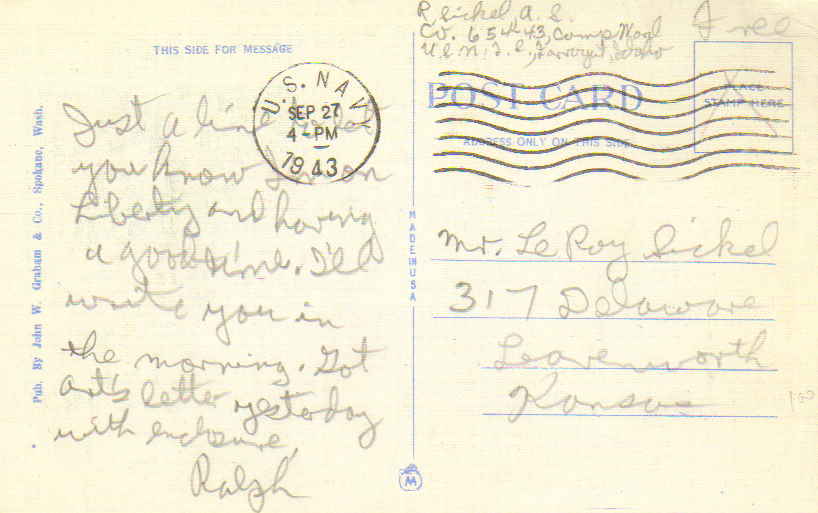 R Sickel A. S.
Co. 654-43, Camp Wagl
U.S.N.T.S., Farragut, Idaho
Free
THIS SIDE FOR MESSAGE
U.S. NAVY
SEP 27
4-PM
1943
POST CARD
PLACE
STAMP HERE
ADDRESS ONLY ON THIS SIDE
Just a line to let
you know I'm on
Liberty and having
a good time. I'll
write you in
the morning. Got
Art's letter yesterday
with enclosure,
Ralph
Mr. LeRoy Sickel
317 Delaware
Leavenworth
Kansas
MADE IN USA
Pub. By John W. Graham & Co., Spokane, Wash.